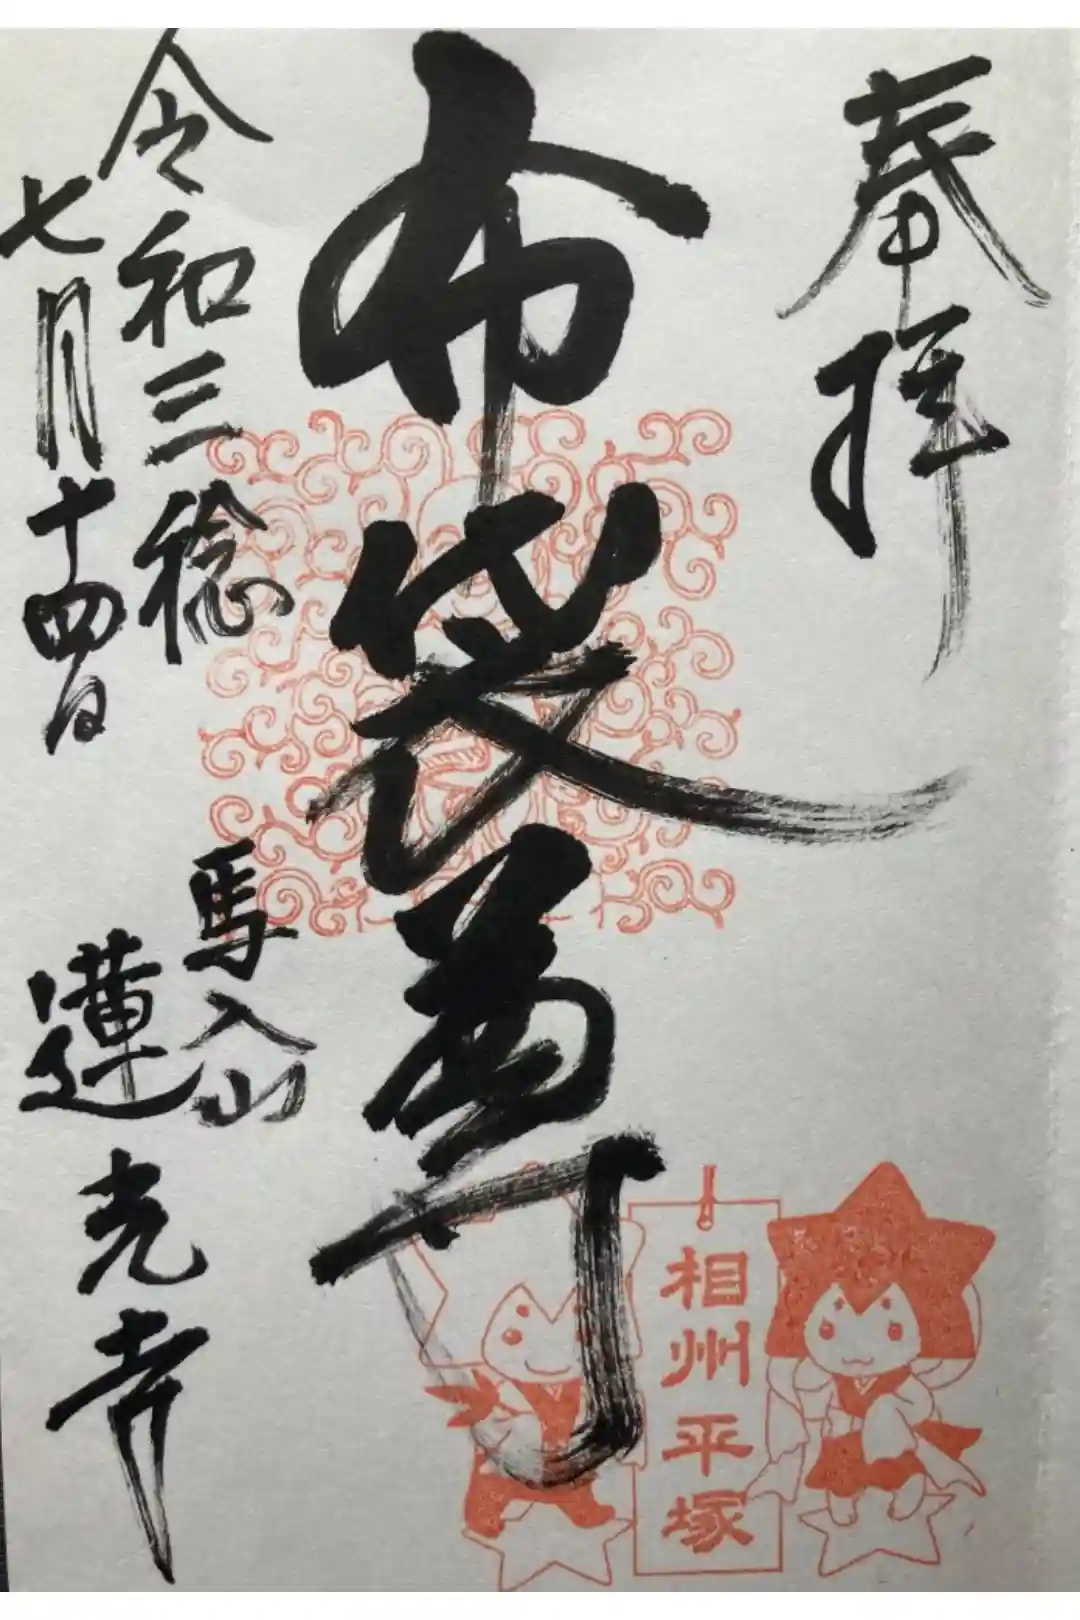 奉拝
布袋尊
相州平塚
令和三稔
七月十四日
馬入山
蓮光寺